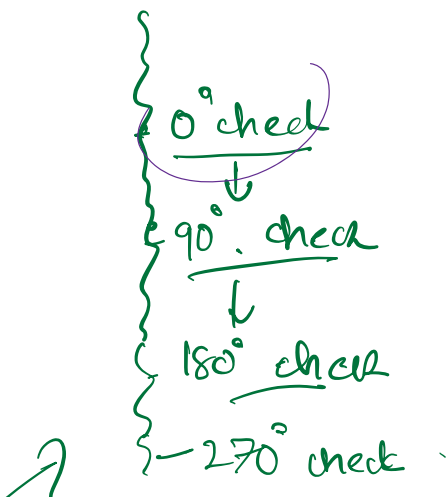 0° check
90° . check
180° check
270° check